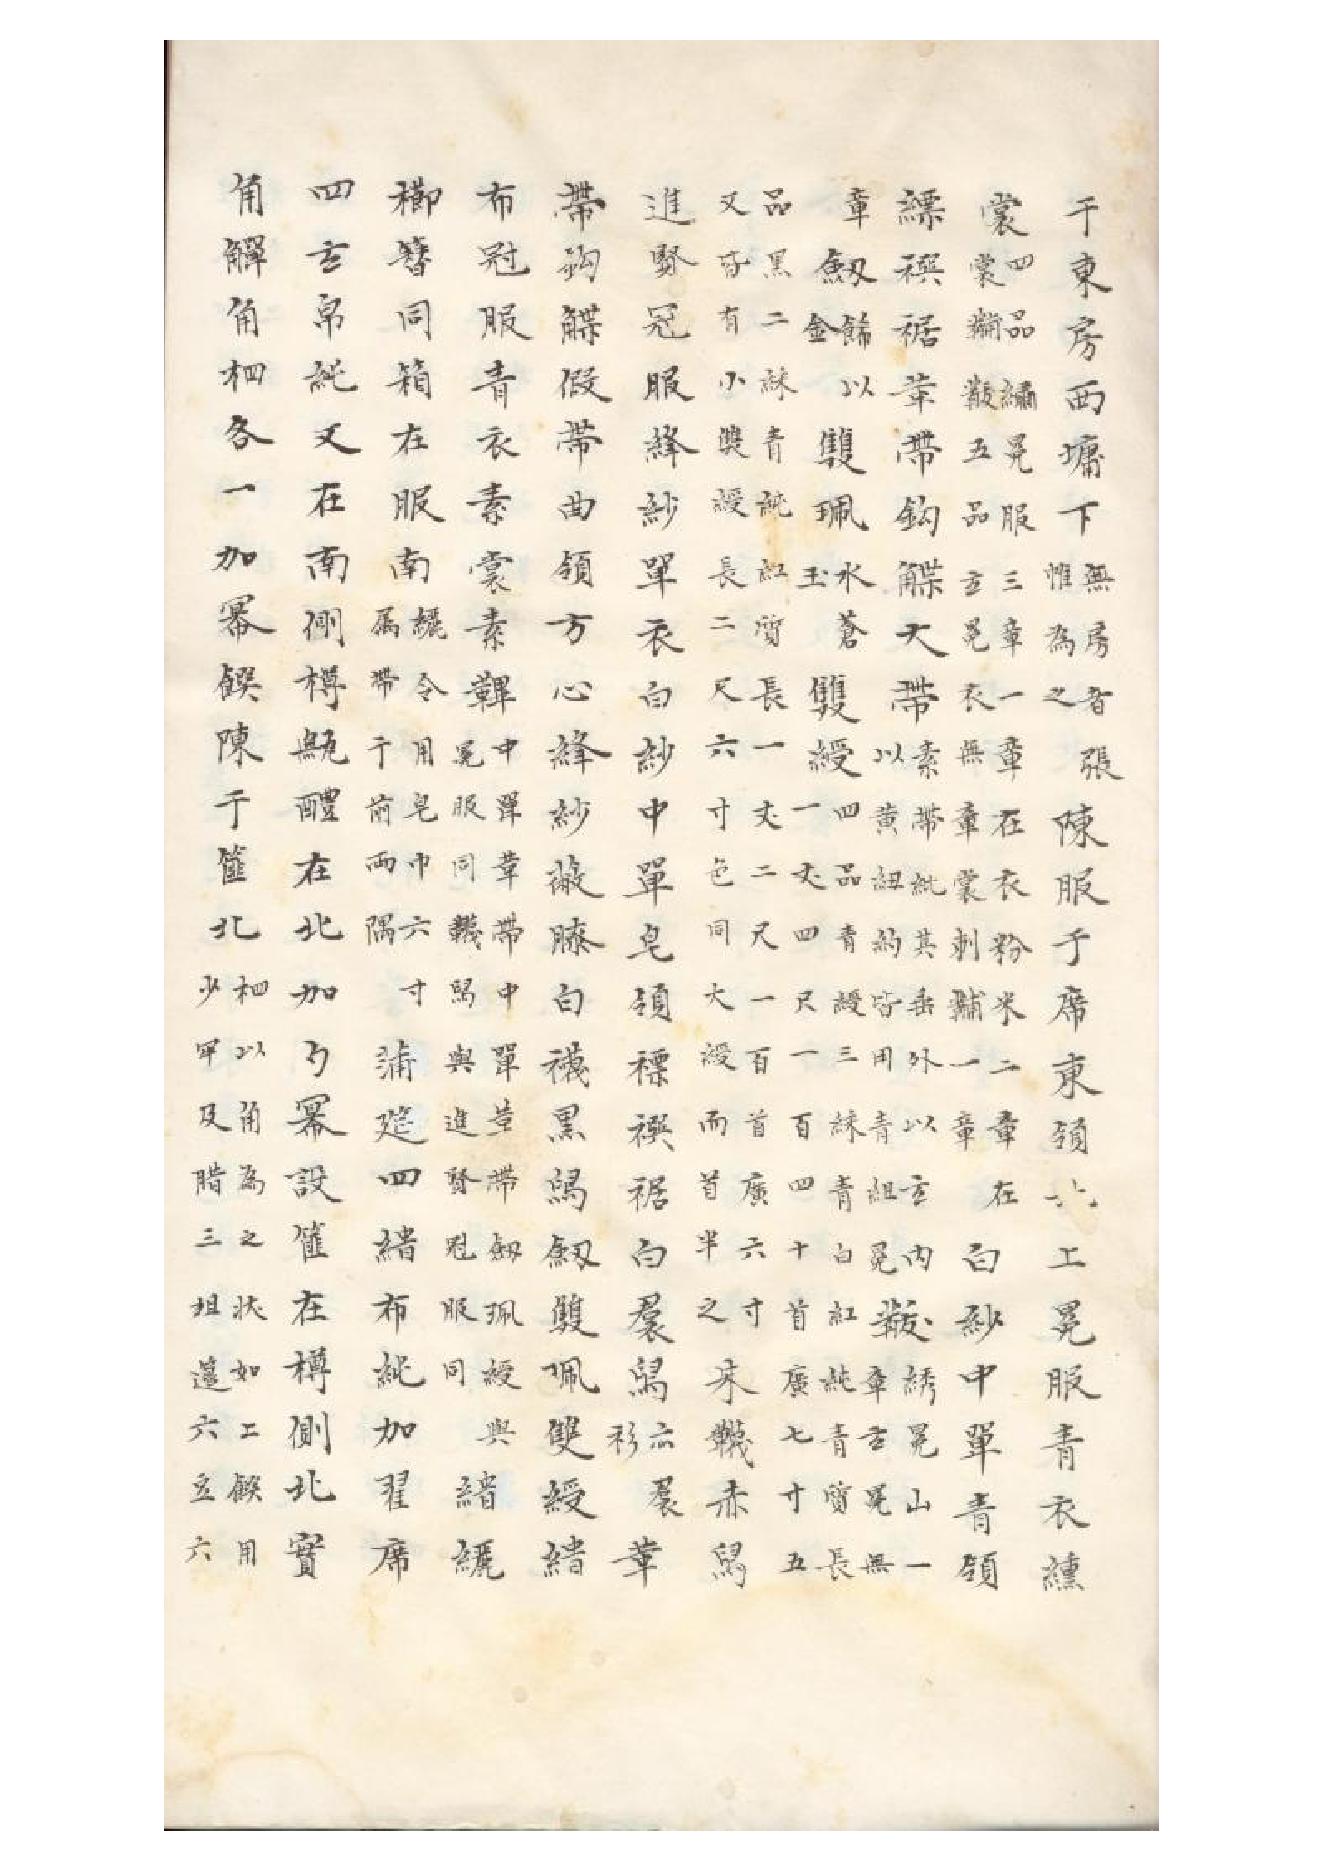 于東房西墉下無房者張惟為之陳服于席東領北上冕服青衣纁
裳四品繡冕服三章一章在衣粉米二章在裳黼黻五品玄冕衣無章裳刺黼一章白紗中單青領
縹襈裾革帶鈎䚢大帶素帶紕其垂外以玄内以黄紐約皆用青組冕韍綉冕山一章玄冕無
章劔飾以金雙珮水蒼玉雙綬四品青綬三綵青白紅純青質長一丈四尺一百四十首廣七寸五
品黒二綵青純紅質長一丈二尺一百首廣六寸又皆有小雙綬長二尺六寸色同大綬而首半之朱韈赤舄
進賢冠服絳紗單衣白紗中單皂領褾襈裾白裠舄亦裠衫革
帶鈎䚢假帶曲領方心絳紗蔽膝白襪黒舄劔雙珮雙綬緇
布冠服青衣素裳素韠中單革帶中單革帶劔珮綬與冕服同韈舄與進賢冠服同緇纚
櫛簪同箱在服南纚令用皂巾六寸属帶于前兩隅蒲筵四緇布純加翟席
四玄帛純又在南側樽甒醴在北加勺冪設篚在樽側北實
角觶角柶各一加冪饌陳于篚北柶以角為之状如匕饌用少牢及腊三俎籩六豆六